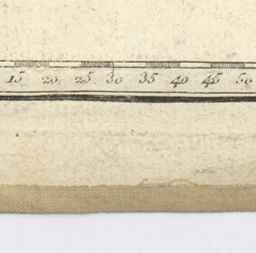 15 20 25 30 35 40 45 50